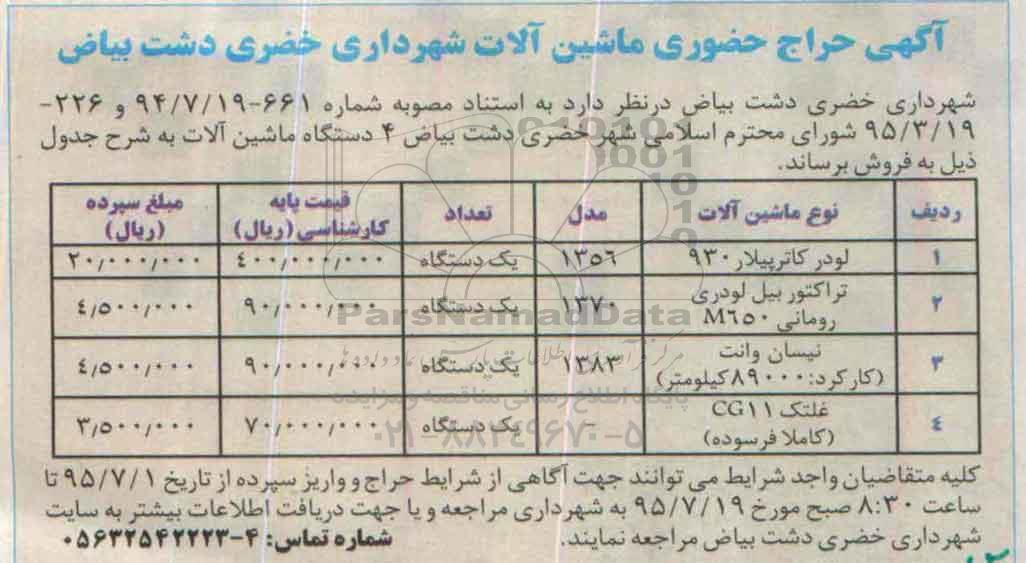 آگهی حراج حضوری ماشین آلات شهرداری خضری دشت بیاض
شهرداری خضری دشت بیاض درنظر دارد به استناد مصوبه شماره ۶۶۱-۹۴/۷/۱۹ و ۲۲۶-
۹۵/۳/۱۹ شورای محترم اسلامی شهر خضری دشت بیاض ۴ دستگاه ماشین آلات به شرح جدول
ذیل به فروش برساند.
ردیف نوع ماشین آلات مدل تعداد قیمت پایه کارشناسی (ریال) مبلغ سپرده (ریال)
۱ لودر کاترپیلار ۹۳۰ ۱۳۵۶ یک دستگاه ۴۰۰/۰۰۰/۰۰۰ ۲۰/۰۰۰/۰۰۰
۲ تراکتور بیل لودری رومانی M۶۵۰ ۱۳۷۰ یک دستگاه ۹۰/۰۰۰/۰۰۰ ۴/۵۰۰/۰۰۰
۳ نیسان وانت (کارکرد: ۸۹۰۰۰کیلومتر) ۱۳۸۳ یک دستگاه ۹۰/۰۰۰/۰۰۰ ۴/۵۰۰/۰۰۰
۴ غلتک CG۱۱ (کاملا فرسوده) - یک دستگاه ۷۰/۰۰۰/۰۰۰ ۳/۵۰۰/۰۰۰
ParsNamadData
پایگاه اطلاع رسانی مناقصه و مزایده
۰۲۱-۸۸۳۴۹۶۷۰-۵
کلیه متقاضیان واجد شرایط می توانند جهت آگاهی از شرایط حراج و واریز سپرده از تاریخ ۹۵/۷/۱ تا
ساعت ۸:۳۰ صبح مورخ ۹۵/۷/۱۹ به شهرداری مراجعه و یا جهت دریافت اطلاعات بیشتر به سایت
شهرداری خضری دشت بیاض مراجعه نمایند. شماره تماس: ۴-۰۵۶۳۲۵۴۲۲۲۳